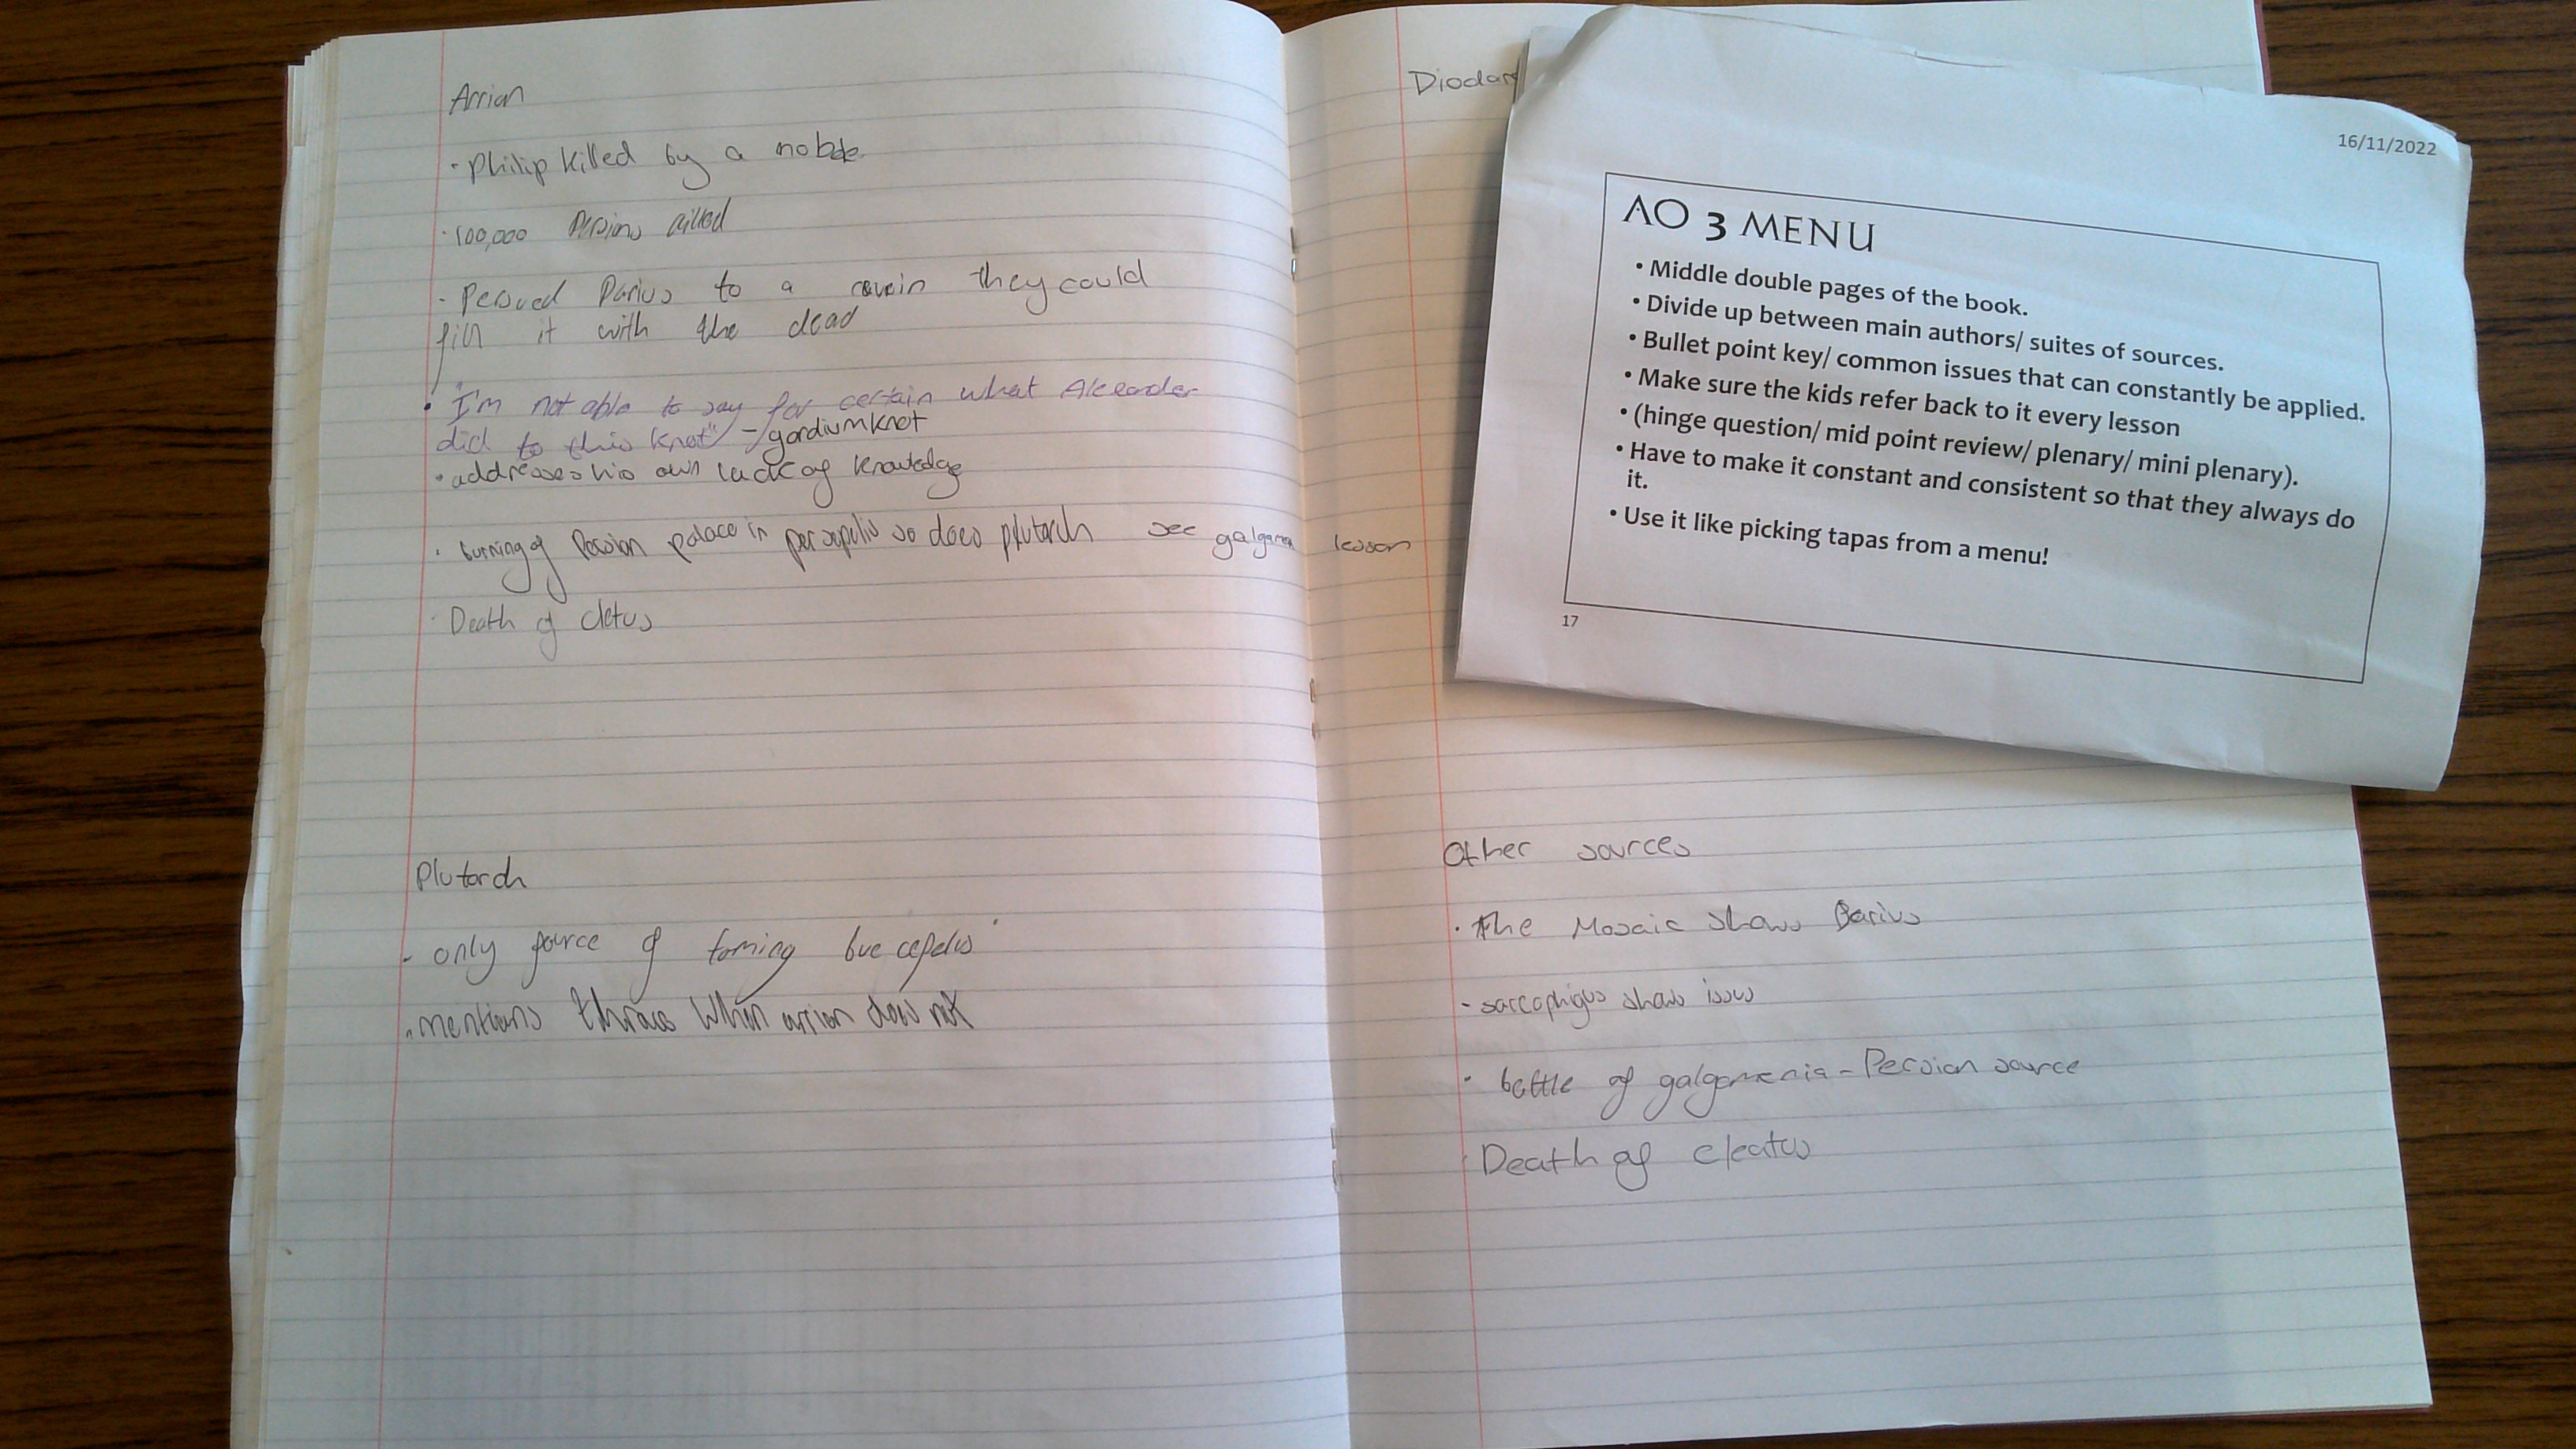 Arrian
· Philip killed by a noble
· 100,000 Persians killed
· Persued Darius to a ravein they could
fill it with the dead
· "I'm not able to say for certain what Alexander
did to this knot" - gordium knot
· addresses his own lack of knowledge
· burning of Persian palace in persepolis so does plutarch see galgamea lesson
· Death of cletus
Plutarch
- only source of taming bucefelus
· mentions thrace when arrian does not
Diodor
Other sources
· the Mosaic shows Darius
- sarcophigus shows issus
· battle of galgamenia - Persian source
· Death of cleatus
16/11/2022
AO 3 MENU
• Middle double pages of the book.
• Divide up between main authors/ suites of sources.
• Bullet point key/ common issues that can constantly be applied.
• Make sure the kids refer back to it every lesson
• (hinge question/ mid point review/ plenary/ mini plenary).
• Have to make it constant and consistent so that they always do
it.
• Use it like picking tapas from a menu!
17